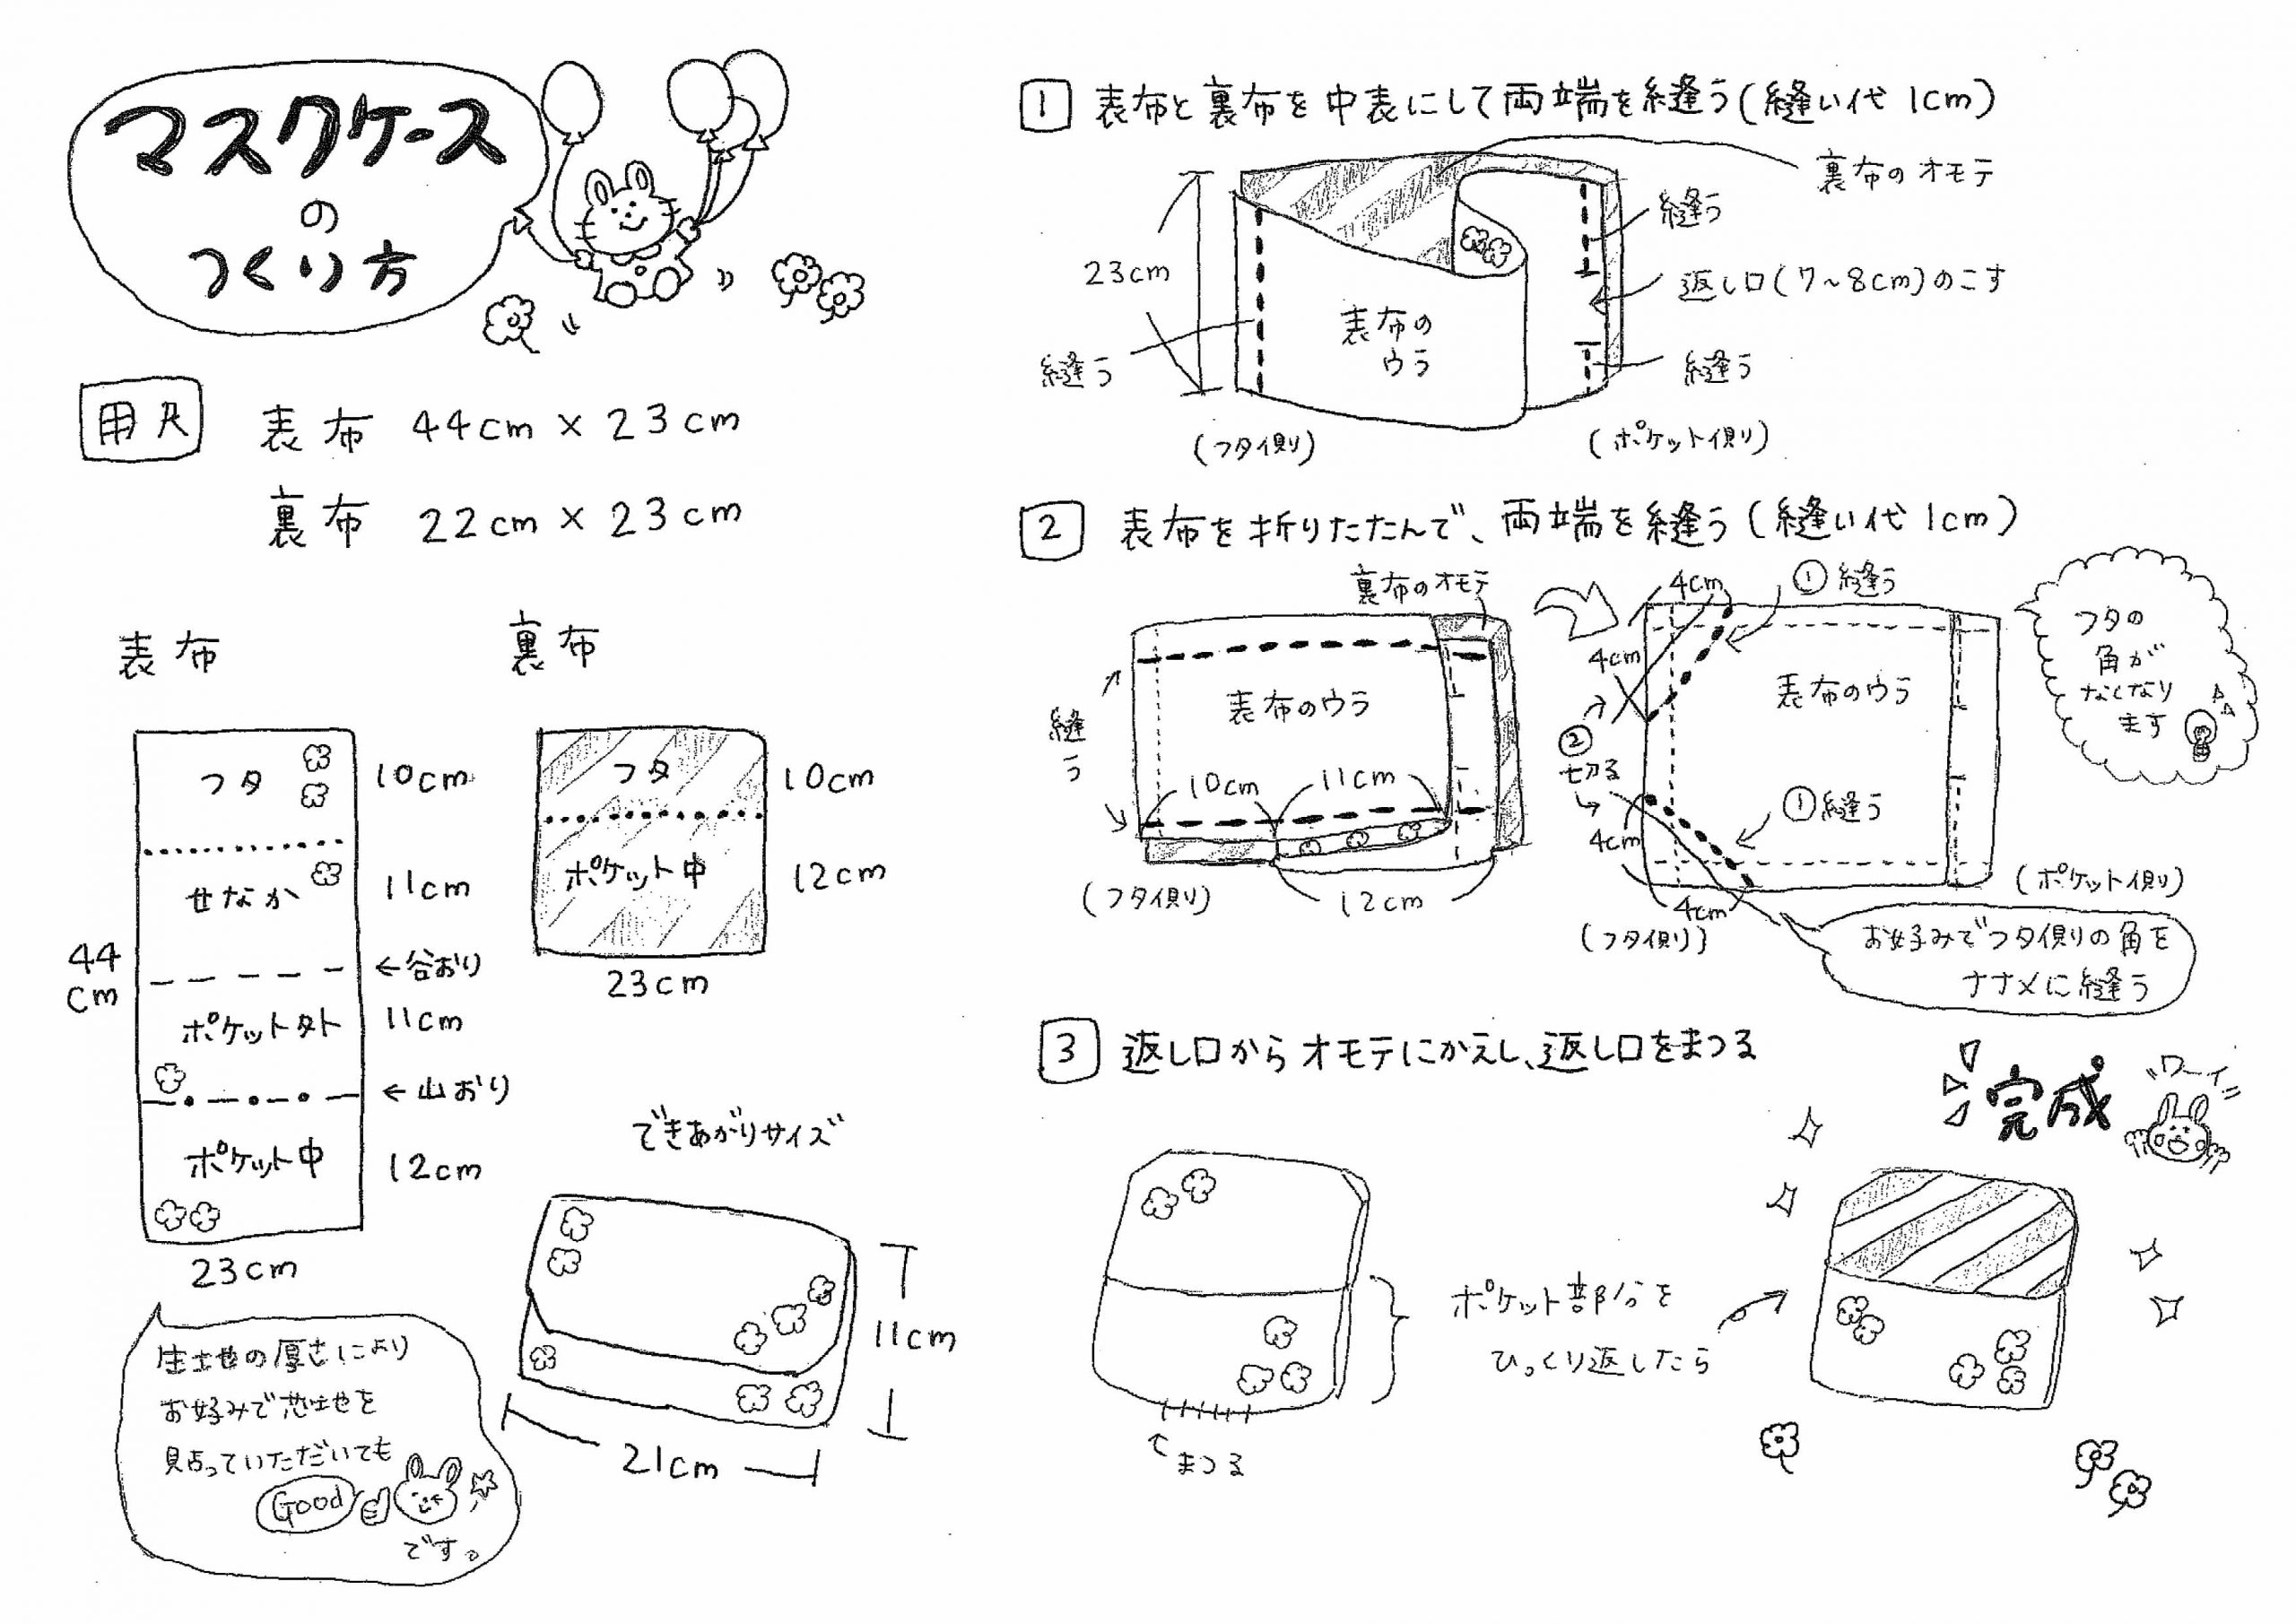 マスクケース
の
つくり方
用尺
表布 44cm × 23cm
裏布 22cm × 23cm
表布
フタ
10cm
せなか
11cm
←谷おり
44
cm
ポケット外
11cm
←山おり
ポケット中
12cm
23cm
裏布
フタ
10cm
ポケット中
12cm
23cm
生地の厚さにより
お好みで芯地を
貼っていただいても
Good
です。
できあがりサイズ
11cm
21cm
1 表布と裏布を中表にして両端を縫う(縫い代 1cm)
裏布のオモテ
縫う
23cm
返し口(7~8cm)のこす
表布の
ウラ
縫う
縫う
(フタ側)
(ポケット側)
2 表布を折りたたんで、両端を縫う(縫い代 1cm)
裏布のオモテ
表布のウラ
縫
う
10cm
11cm
(フタ側)
12cm
4cm
①縫う
4cm
表布のウラ
②
切る
①縫う
4cm
4cm
(フタ側)
(ポケット側)
フタの
角が
なくなり
ます
お好みでフタ側の角を
ナナメに縫う
3 返し口からオモテにかえし、返し口をまつる
完成
ワーイ
ポケット部分を
ひっくり返したら
まつる